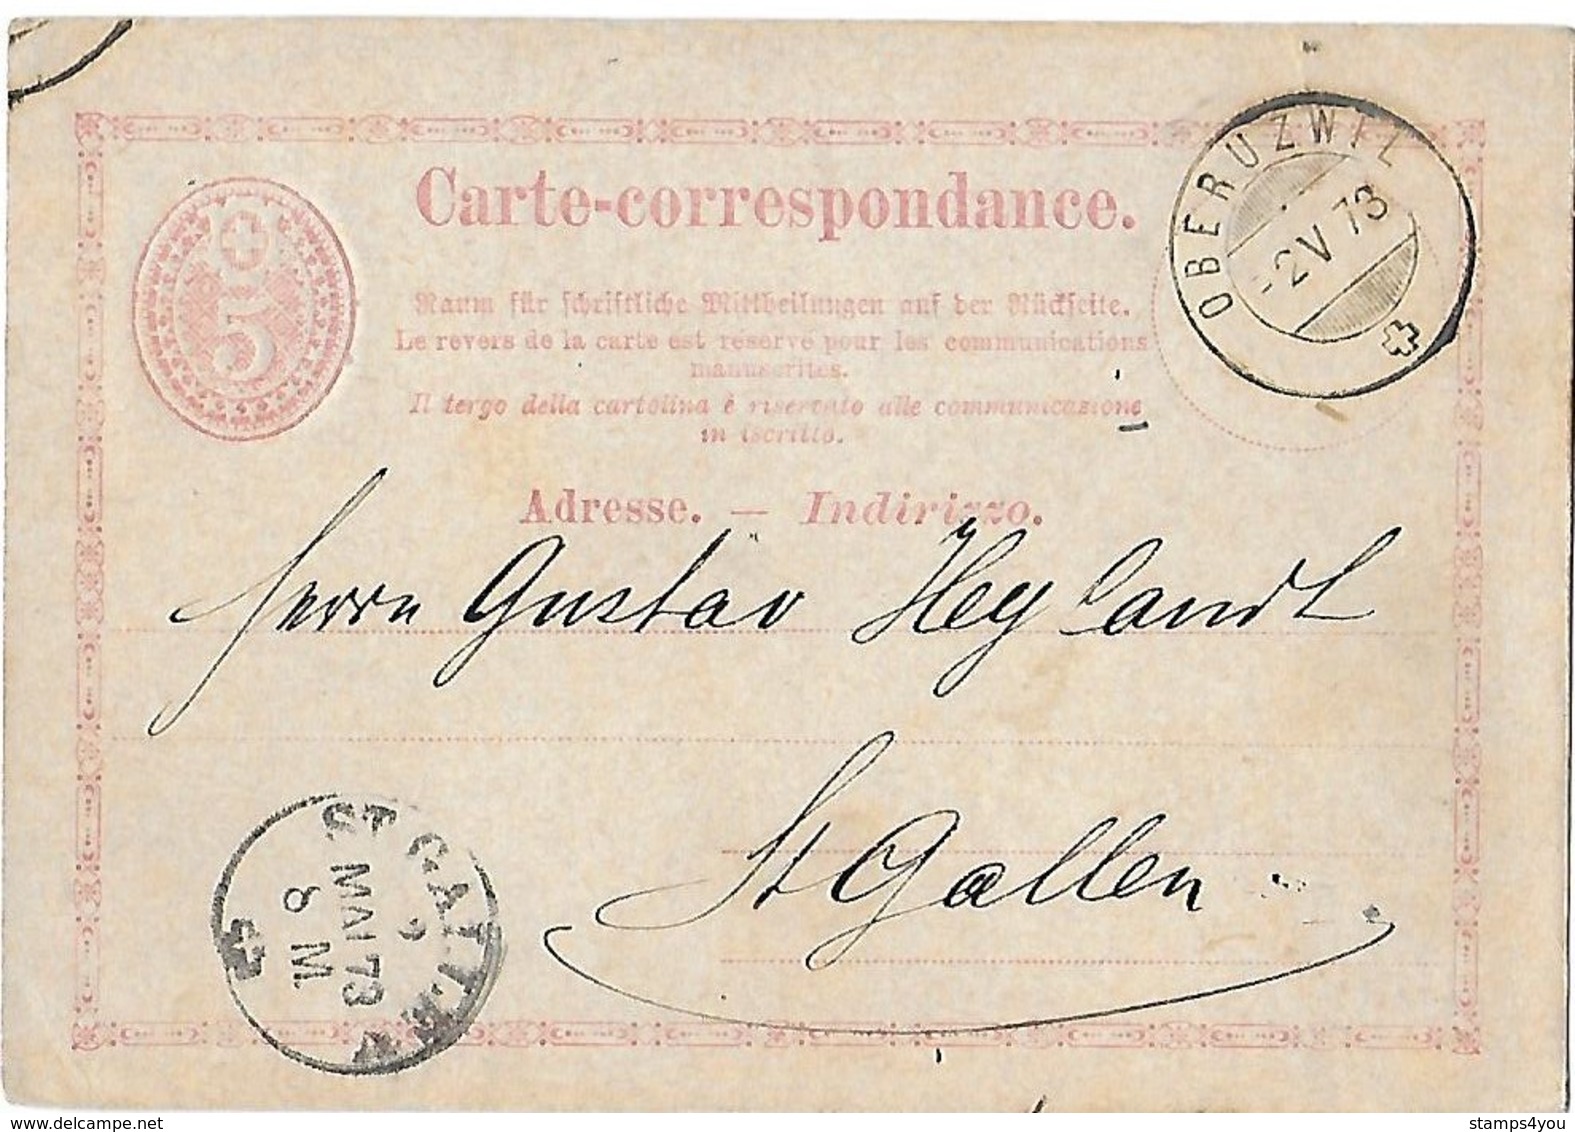 Carte-correspondance.
OBERUZWYL
-2 V 73
5
Raum für schriftliche Mittheilungen auf der Rückseite.
Le revers de la carte est réservé pour les communications
manuscrites.
Il tergo della cartolina è riservato alle communicazione
in iscritto.
Adresse. — Indirizzo.
Herrn Gustav Heylandt
St Gallen
ST. GALLEN
MAI 73
8 M.
stamps4you